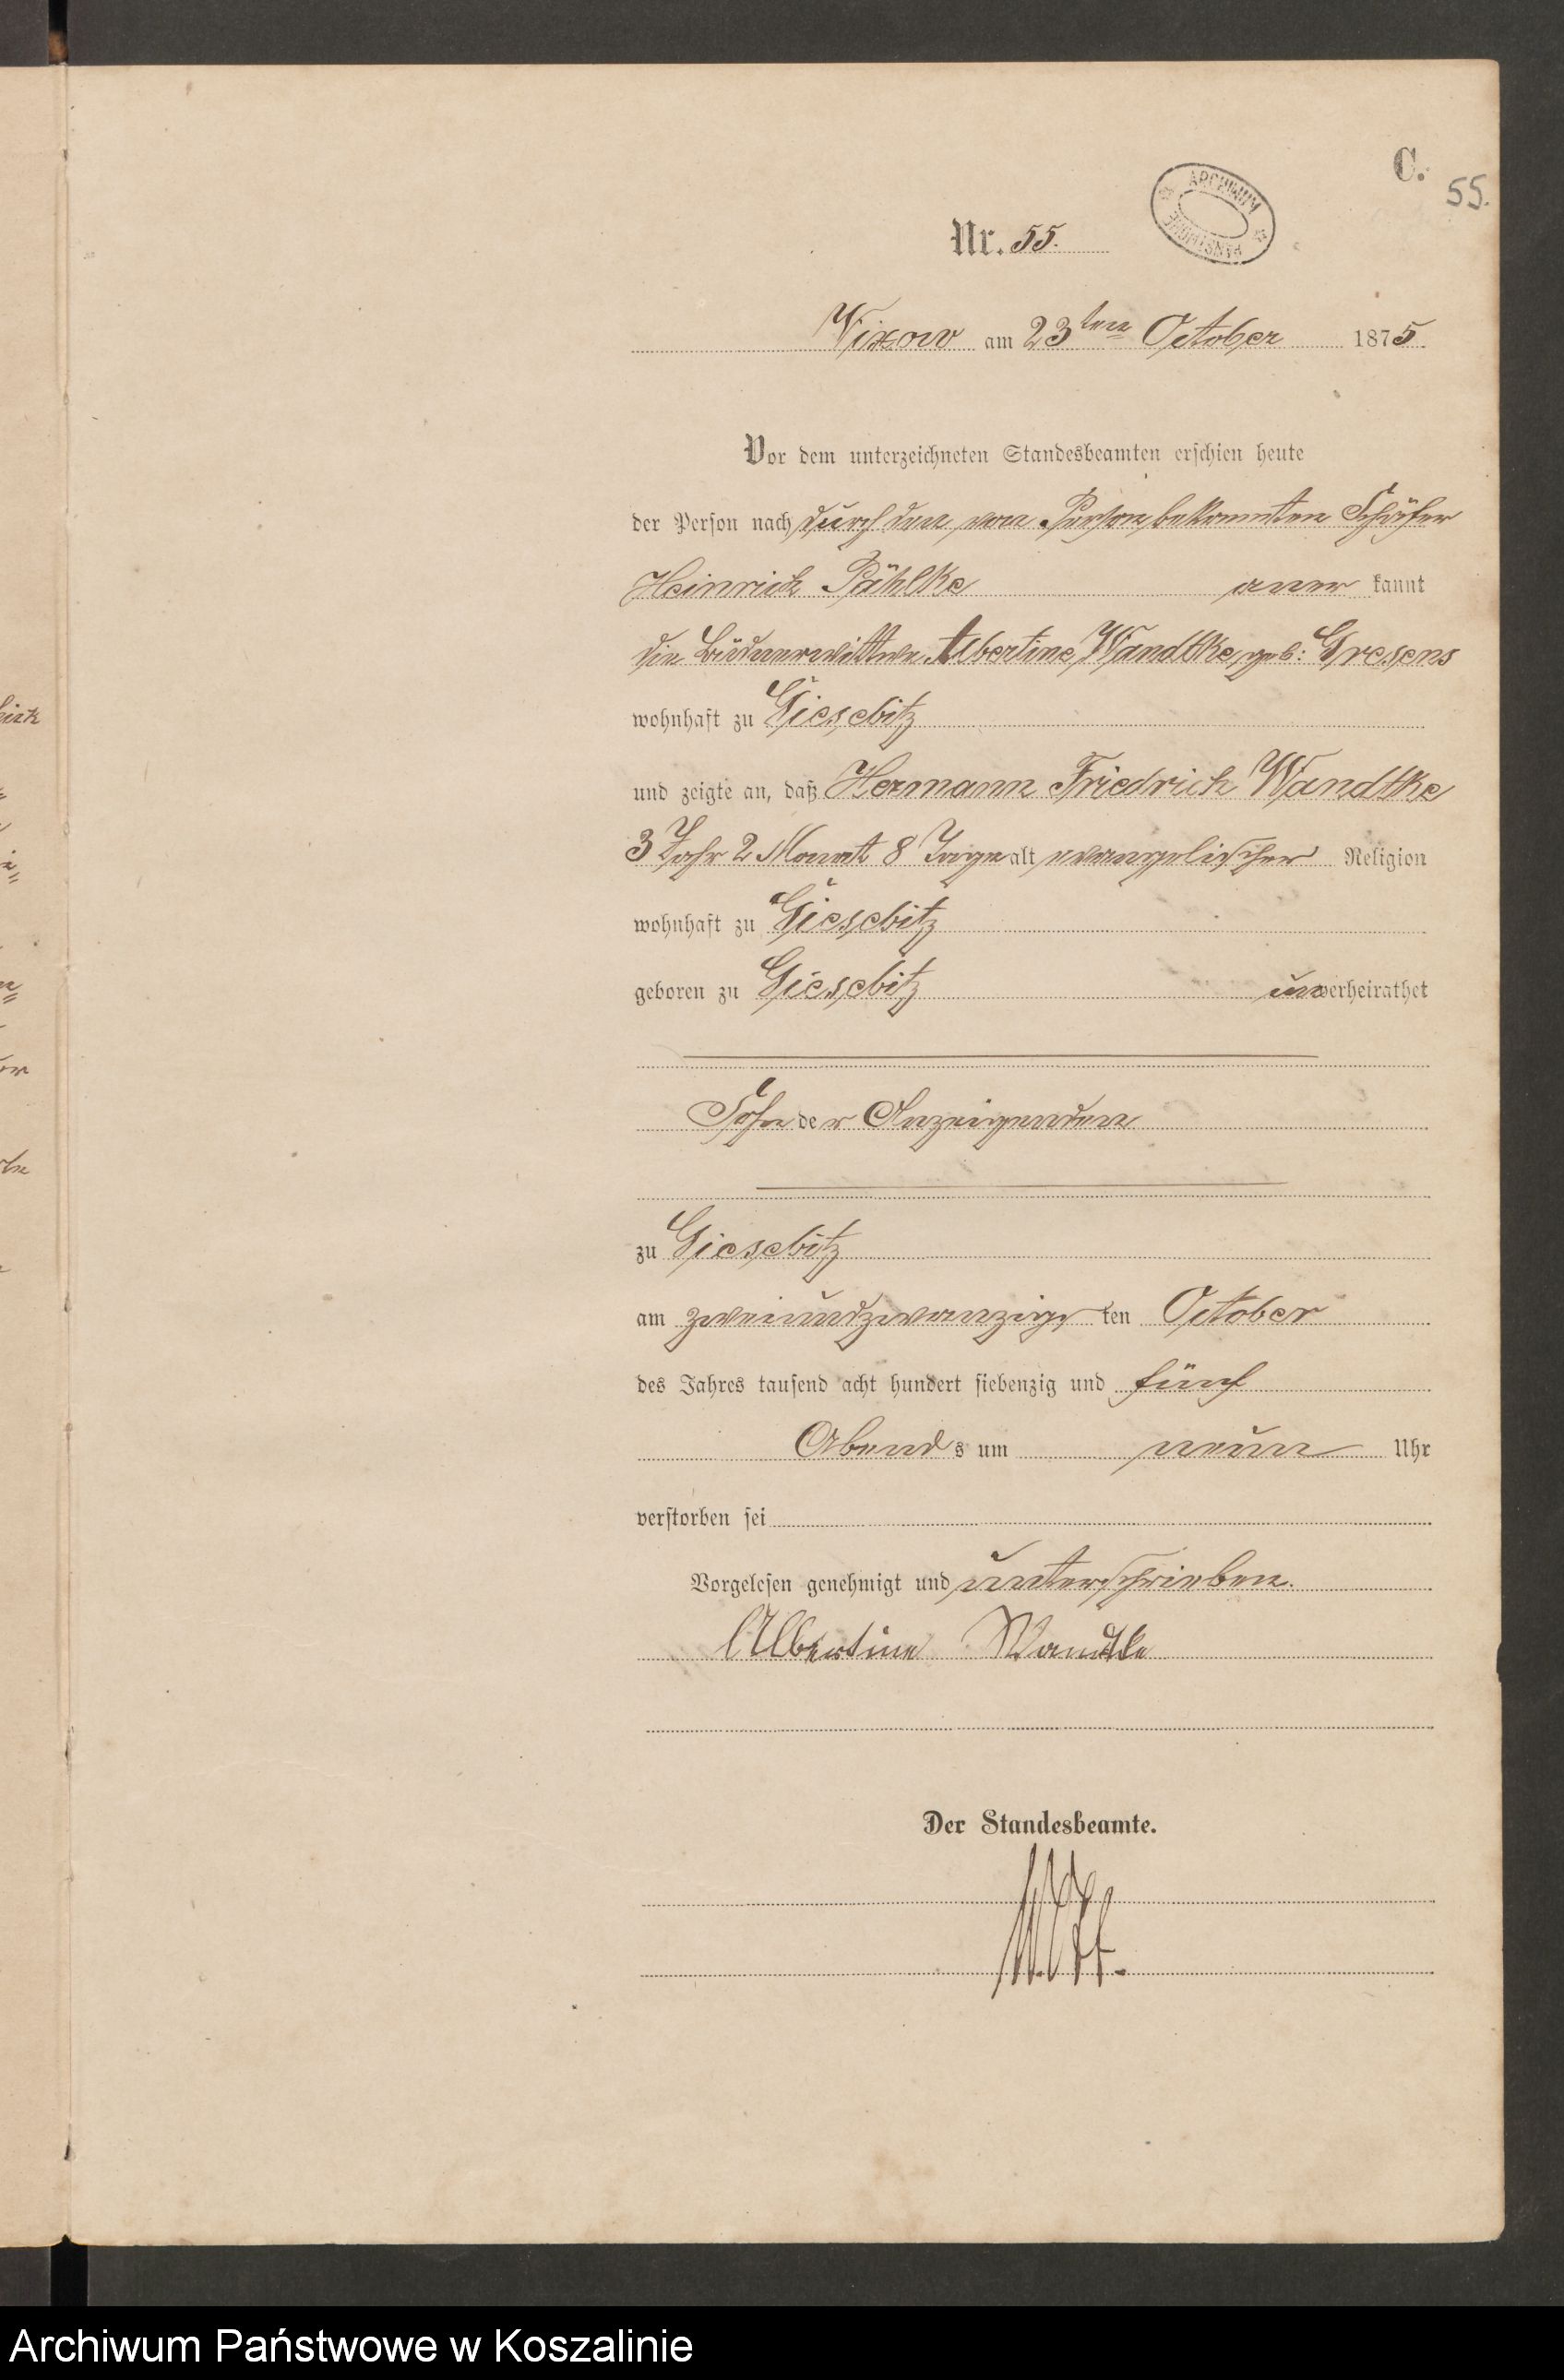 C.
55.
ARCHIWUM PAŃSTWOWE
Nr. 55.
Vixow am 23ten October 1875.
Vor dem unterzeichneten Standesbeamten erschien heute
der Person nach durch den von Person bekannten Schäfer
Heinrich Pählke aner kannt
die Büdnerwittwe Albertine Wandtke geb: Gresens
wohnhaft zu Giesebitz
und zeigte an, daß Hermann Friedrich Wandtke
3 Jahr 2 Monat 8 Tage alt evangelischer Religion
wohnhaft zu Giesebitz
geboren zu Giesebitz unverheirathet
Sohn der Anzeigenden
zu Giesebitz
am zweiundzwanzigs ten October
des Jahres tausend acht hundert siebenzig und fünf
Abends um neun Uhr
verstorben sei
Vorgelesen genehmigt und unterschrieben.
Albertine Wandtke
Der Standesbeamte.
Archiwum Państwowe w Koszalinie